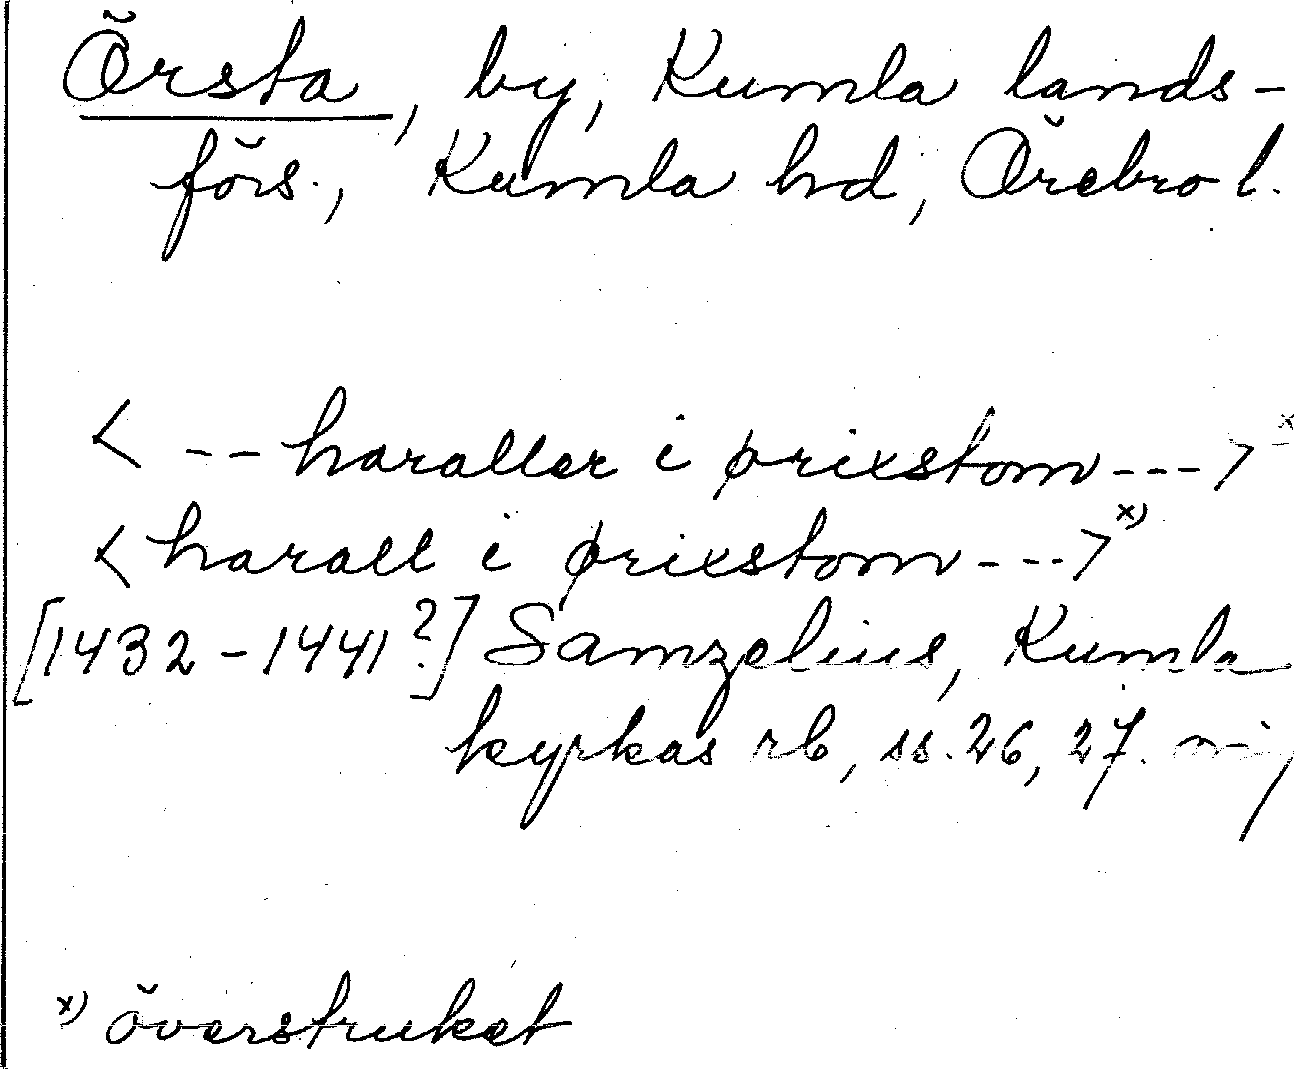 Örsta, by, Kumla lands-
förs., Kumla hd, Örebro l.
< -- haraller i ørixstom --- > x
< harall i ørixstom --- > x)
[1432-1441?] Samzelius, Kumla
kyrkas rb, ss. 26, 27.
x) överstruket